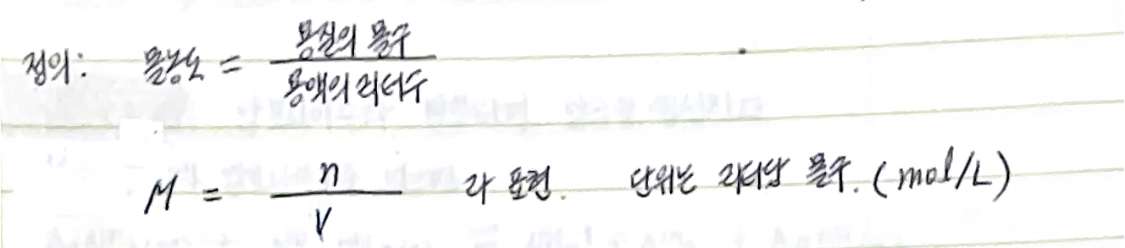 정의: 몰농도 = 용질의 몰수 / 용액의 리터수
M = n / V 라 표현. 단위는 리터당 몰수. (mol/L)